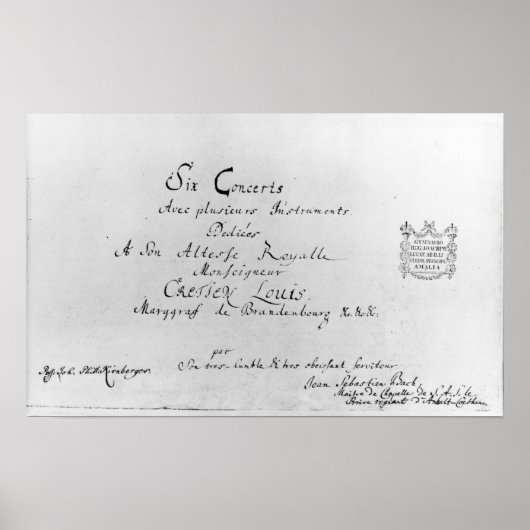 Six Concerts
Avec plusieurs Instruments.
Dediées
A Son Altesse Royalle
Monseigneur
CRETIEN LOUIS.
Marggraf de Brandenbourg &c.&c.&c:
par
Son tres-humble & tres obeissant serviteur
Jean Sebastien Bach,
Maitre de Capelle de S.A.S. le
Prince regnant d'Anhalt-Coethen.
Kirnberger.
GYMNASIO
REG. IOACHIM
LEGAT. SEREN.
PRINCIPIS
AMALIA